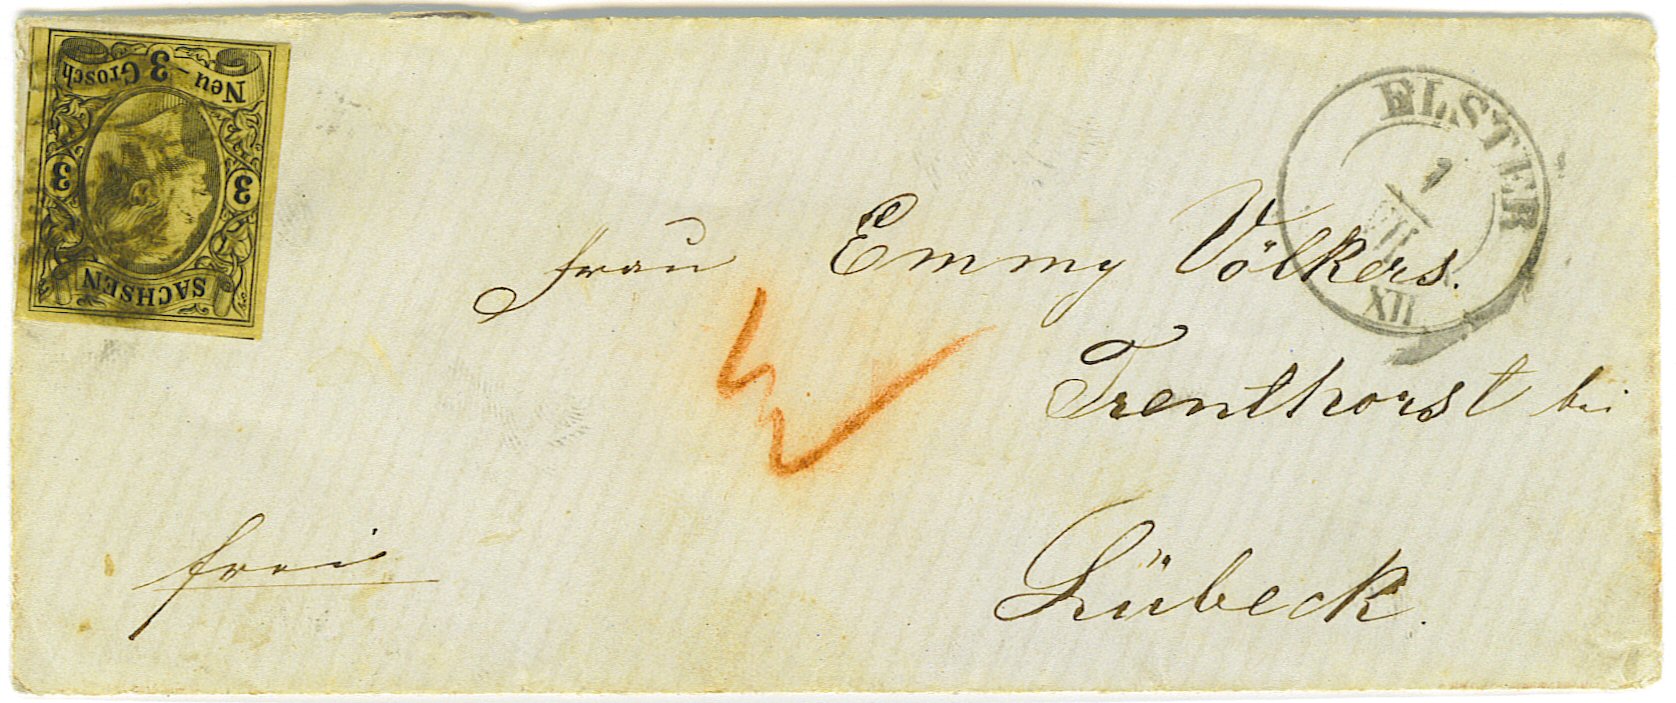 Neu – 3 Grosch
3
3
SACHSEN
ELSTER
1
VII
XII
Frau Emmy Völkers.
Trenthorst bei
Lübeck.
frei